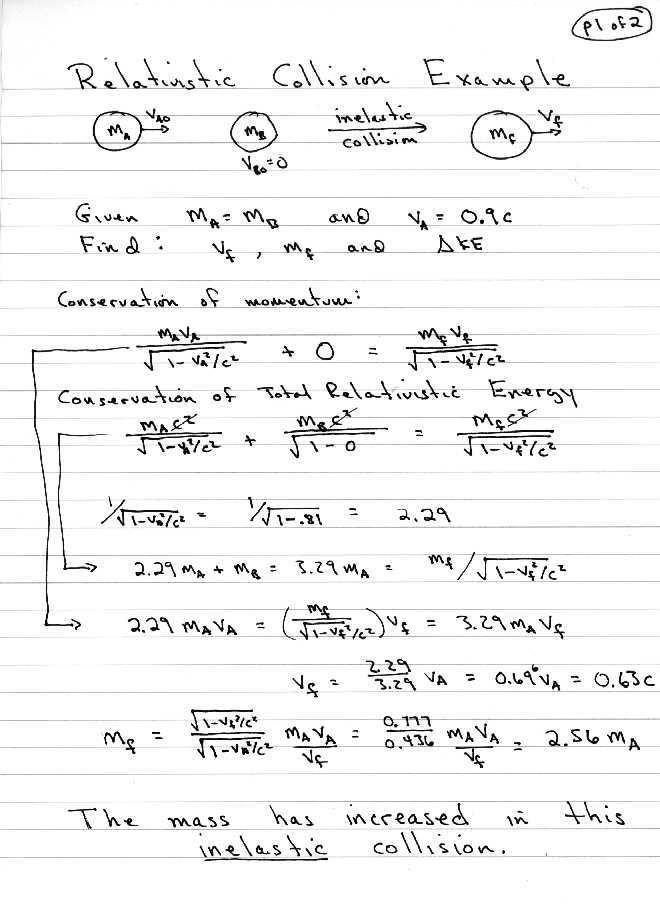 p1 of 2
Relativistic Collision Example
m_A V_A0 m_B inelastic collision m_f V_f
V_B0 = 0
Given m_A = m_B and V_A = 0.9c
Find : V_f , m_f and ΔKE
Conservation of momentum:
m_A V_A / √(1 - V_A²/c²) + 0 = m_f V_f / √(1 - V_f²/c²)
Conservation of Total Relativistic Energy
m_A c² / √(1 - V_A²/c²) + m_B c² / √(1 - 0) = m_f c² / √(1 - V_f²/c²)
1/√(1 - V_A²/c²) = 1/√(1 - .81) = 2.29
2.29 m_A + m_B = 3.29 m_A = m_f / √(1 - V_f²/c²)
2.29 m_A V_A = (m_f / √(1 - V_f²/c²)) V_f = 3.29 m_A V_f
V_f = 2.29/3.29 V_A = 0.696 V_A = 0.63c
m_f = √(1 - V_f²/c²) / √(1 - V_A²/c²) m_A V_A / V_f = 0.777/0.436 m_A V_A / V_f = 2.56 m_A
The mass has increased in this
inelastic collision.